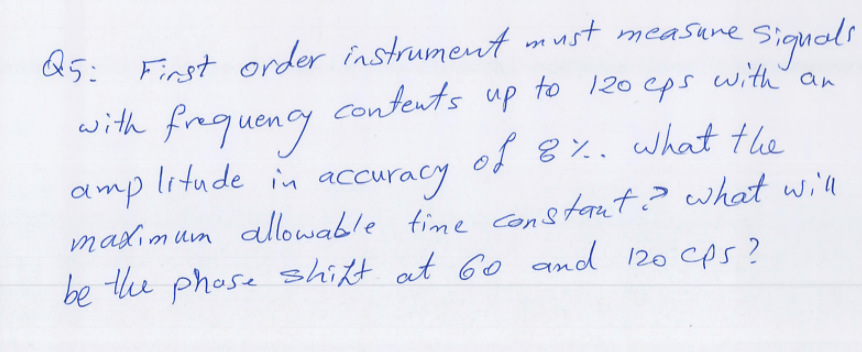 Q5: First order instrument must measure signals
with frequency contents up to 120 cps with an
amplitude in accuracy of 8%. what the
maximum allowable time constant? what will
be the phase shift at 60 and 120 cps?